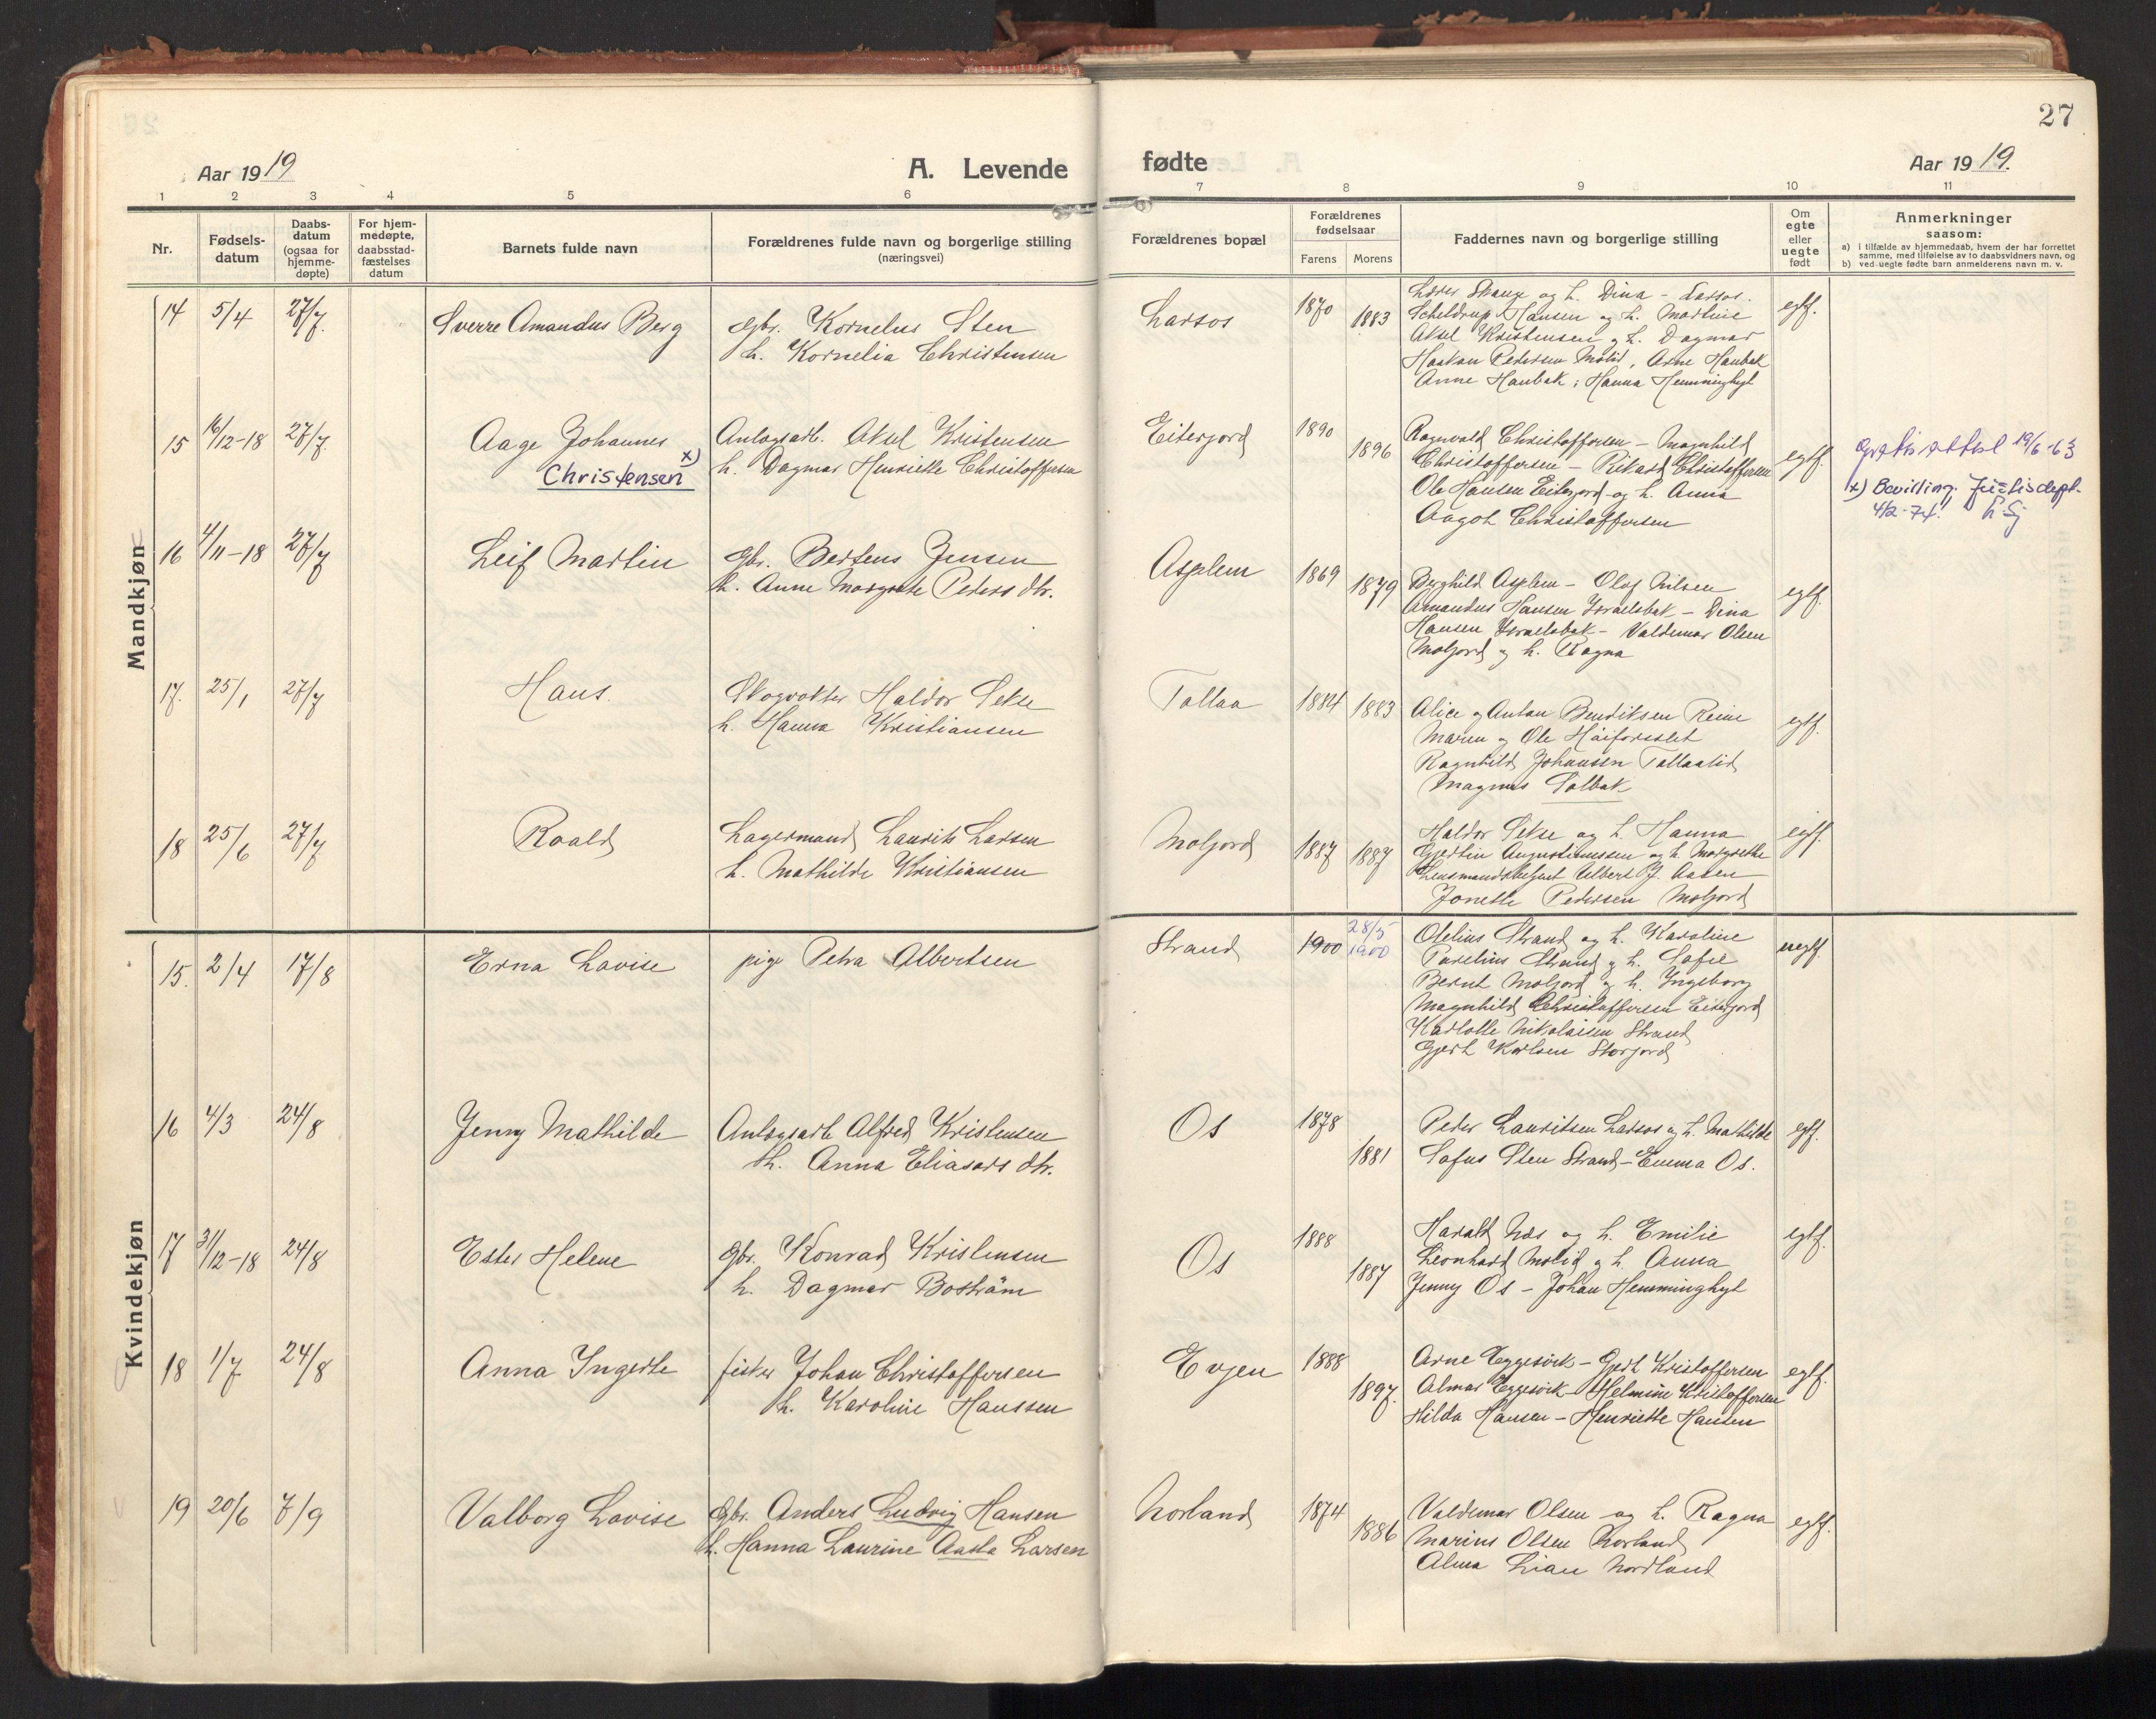 27
Aar 1919
A. Levende fødte
Aar 1919.
1 2 3 4 5 6 7 8 9 10 11
Nr.
Fødsels-
datum
Daabs-
datum
(ogsaa for
hjemme-
døpte)
For hjem-
medøpte,
daabsstad-
fæstelses
datum
Barnets fulde navn
Forældrenes fulde navn og borgerlige stilling
(næringsvei)
Forældrenes bopæl
Forældrenes
fødselsaar
Farens Morens
Faddernes navn og borgerlige stilling
Om
egte
eller
uegte
født
Anmerkninger
saasom:
a) i tilfælde av hjemmedaab, hvem der har forrettet
samme, med tilføielse av to daabsvidners navn, og
b) ved uegte fødte barn anmelderens navn m. v.
Mandkjøn
14 5/4 27/7. Sverre Amandus Berg
Gbr. Kornelius Sten
h. Kornelia Christensen
Larsos 1870 1883
Lærer Skauge og h. Dina - Larsos.
Scheldrup Hansen og h. Martine
Aksel Kristensen og h. Dagmar
Haakon Pedersen Molid, Arne Haubak
Anne Haubak; Hanna Hemminghyt
egtf.
15 16/12-18 27/7. Aage Johannes x)
Christensen
Anlagsarb. Aksel Kristensen
h. Dagmar Henriette Christoffersen
Eiterjord 1890 1896
Ragnvald Christoffersen - Magnhild
Christoffersen - Rikard Christoffersen
Ole Hansen Eiterjord og h. Anna
Aagot Christoffersen
egtf.
Gratis attest 19/6-63
x) Bevilling. Justisdept.
4/2-74.
16 4/11-18 27/7 Leif Martin
Gbr. Bertens Jensen
h. Anne Margrete Peders dtr.
Asplem 1869 1879
Berghild Asplem - Olaf Nilsen
Amandus Hansen Israelsbak - Dina
Hansen Israelsbak - Valdemar Olsen
Moljord og h. Ragna
egtf.
17. 25/1 27/7 Hans.
Skogvokter Haldor Sekse
h. Hanna Kristiansen
Tollaa 1884 1883
Alice og Anton Bendiksen Reine
Maren og Ole Høiforsslet
Ragnhild Johansen Tollaalid
Magnus Solbak
egtf.
18 25/6 27/7 Roald
Lagermand Laurits Larsen
h. Mathilde Kristiansen
Moljord 1887 1887
Haldor Sekse og h. Hanna
Gjertin Augustinussen og h. Margrethe
Lensmandsbetjent Albert J. Aasen
Jonette Pedersen Moljord
egtf.
Kvindekjøn
15. 2/4 17/8 Erna Lovise
pige Petra Albertsen
Strand 1900 28/5
1900
Otelius Strand og h. Karoline
Parelius Strand og h. Sofie
Bernt Moljord og h. Ingeborg
Magnhild Christoffersen Eiterjord
Karlotte Nikolaisen Strand
Gjert Karlsen Storjord
uegtf.
16 4/3 24/8 Jenny Mathilde
Anlagsarb Alfred Kristensen
h. Anna Eliasars dtr.
Os 1878 1881
Peder Lauritsen Larsos og h. Mathilde
Sofus Sten Strand - Emma Os.
egtf.
17 31/12-18 24/8 Ester Helene
Gbr. Konrad Kristensen
h. Dagmar Boström
Os 1888 1887
Harald Næs og h. Emilie
Leonhard Molid og h. Anna
Jenny Os - Johan Hemminghyt
egtf.
18 1/7 24/8 Anna Ingerte
fisker Johan Christoffersen
h. Karoline Hanssen
Evjen 1888 1897.
Arne Eggesvik - Gjert Kristoffersen
Almar Eggesvik - Helmine Kristoffersen
Hilda Hansen - Henriette Hansen
egtf.
19 20/6 7/9 Valborg Lovise
Gbr. Anders Ludvig Hansen
h. Hanna Laurine Aasta Larsen
Norland 1874 1886
Valdemar Olsen og h. Ragna
Marius Olsen Norland
Alma Lian Nordland
egtf.